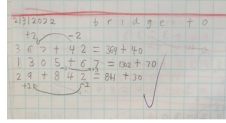 21/3/2022 bridge to
+2 -2
367 + 42 = 369 + 40
1305 + 67 = 1302 + 70
29 + 842 = 841 + 30
+1 -1